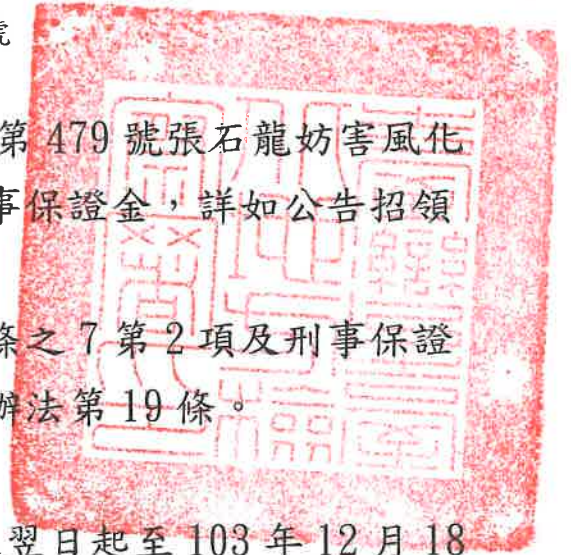 號
第 479 號張石龍妨害風化
事保證金，詳如公告招領
條之 7 第 2 項及刑事保證
辦法第 19 條。
翌日起至 103 年 12 月 18